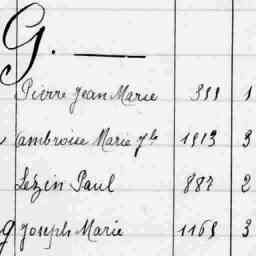 G.
Pierre Jean Marie 1
Ambroise Marie 1913 3
Lézin Paul 887 2
g Joseph Marie 1169 3